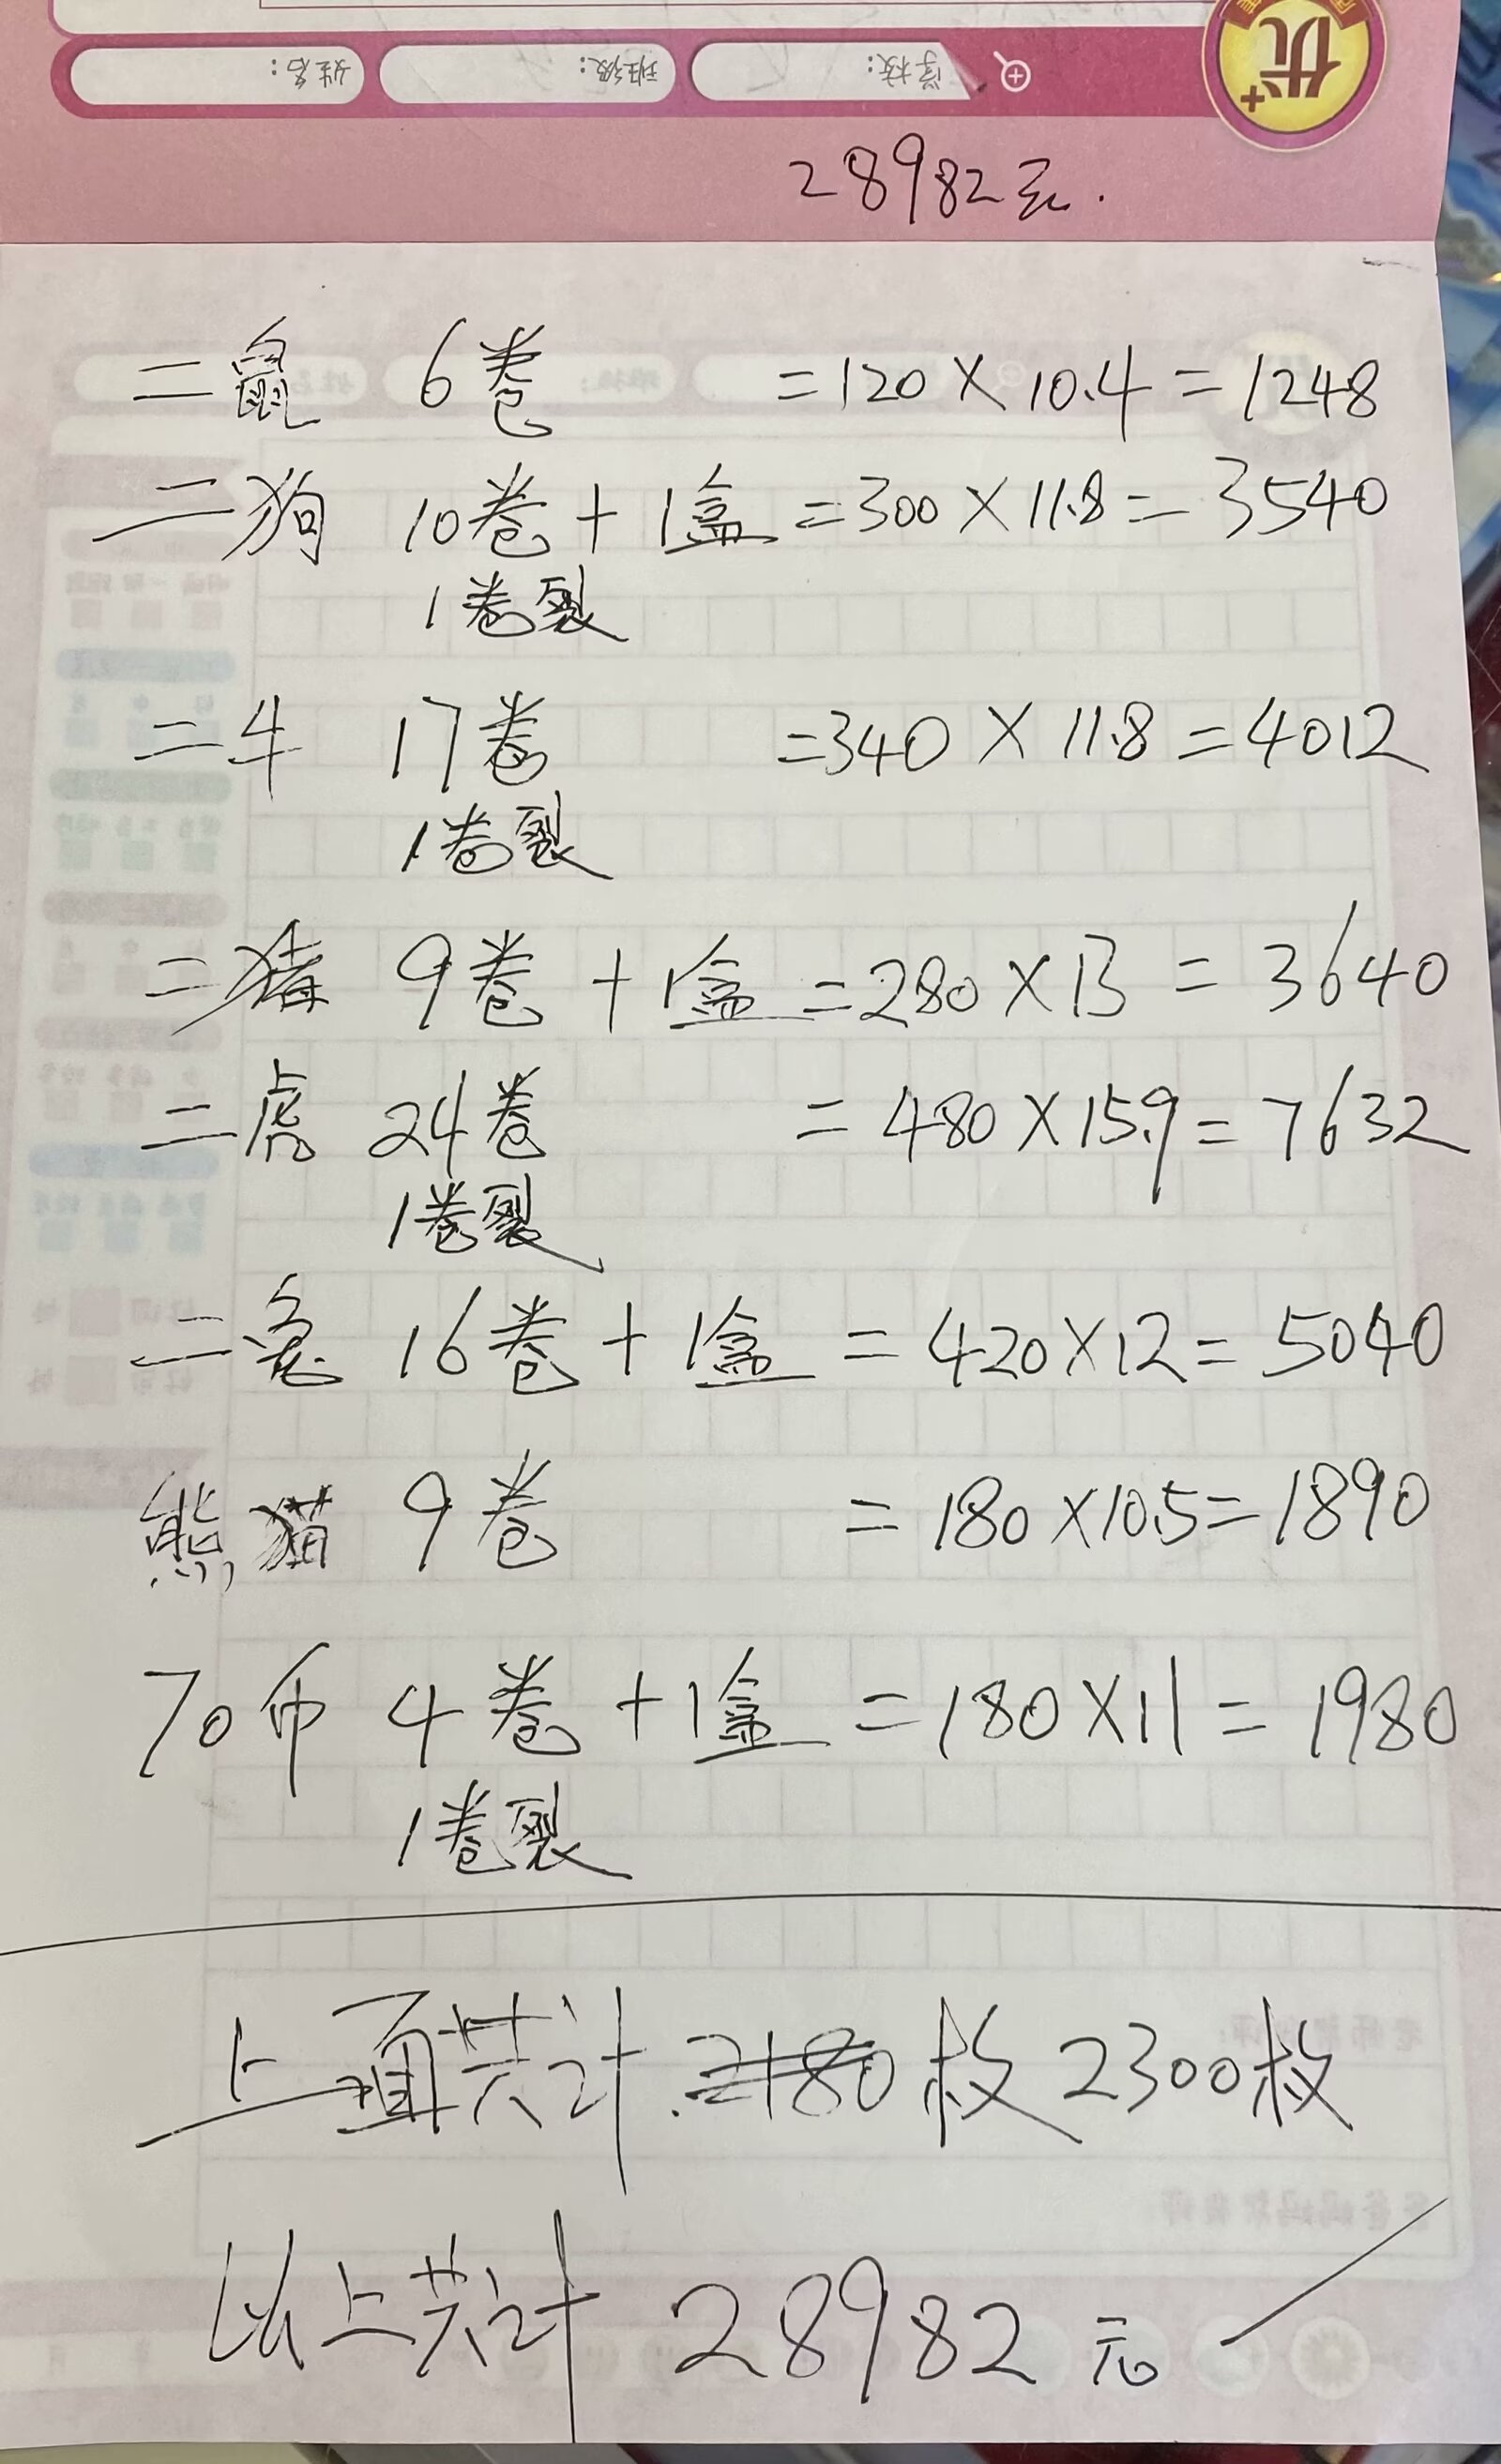 姓名： 班级： 学校：
优+
28982元.
二鼠 6卷 =120×10.4=1248
二狗 10卷+1盒=300×11.8=3540
1卷裂
二牛 17卷 =340×11.8=4012
1卷裂
二猪 9卷+1盒=280×13=3640
二虎 24卷 =480×15.9=7632
1卷裂
二兔 16卷+1盒=420×12=5040
熊猫 9卷 =180×10.5=1890
70币 4卷+1盒=180×11=1980
1卷裂
上面共计 2180枚 2300枚
以上共计 28982元